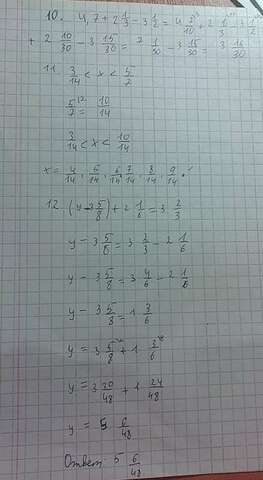 10. 4,7 + 2 1/3 - 3 1/2 = 4 7/10 + 2 1/3 - 3 1/2
+ 2 10/30 - 3 15/30 = 7 1/30 - 3 15/30 = 3 16/30
11. 3/14 < x < 5/7
5/7 = 10/14
3/14 < x < 10/14
x = 4/14, 5/14, 6/14, 7/14, 8/14, 9/14.
12. (y - 3 5/8) + 2 1/6 = 3 2/3
y - 3 5/8 = 3 2/3 - 2 1/6
y - 3 5/8 = 3 4/6 - 2 1/6
y - 3 5/8 = 1 3/6
y = 3 5/8 + 1 3/6
y = 3 30/48 + 1 24/48
y = 5 6/48
Ответ 5 6/48